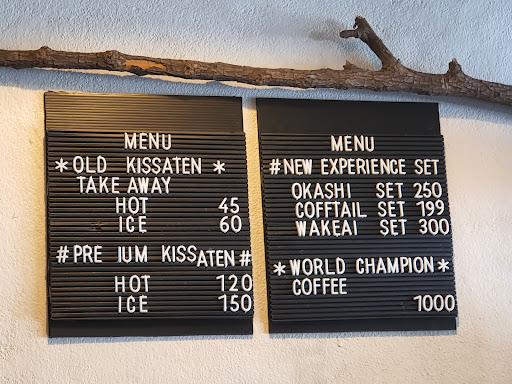 MENU
*OLD KISSATEN *
TAKE AWAY
HOT 45
ICE 60
#PRE IUM KISSATEN#
HOT 120
ICE 150
MENU
#NEW EXPERIENCE SET
OKASHI SET 250
COFFTAIL SET 199
WAKEAI SET 300
*WORLD CHAMPION*
COFFEE
1000